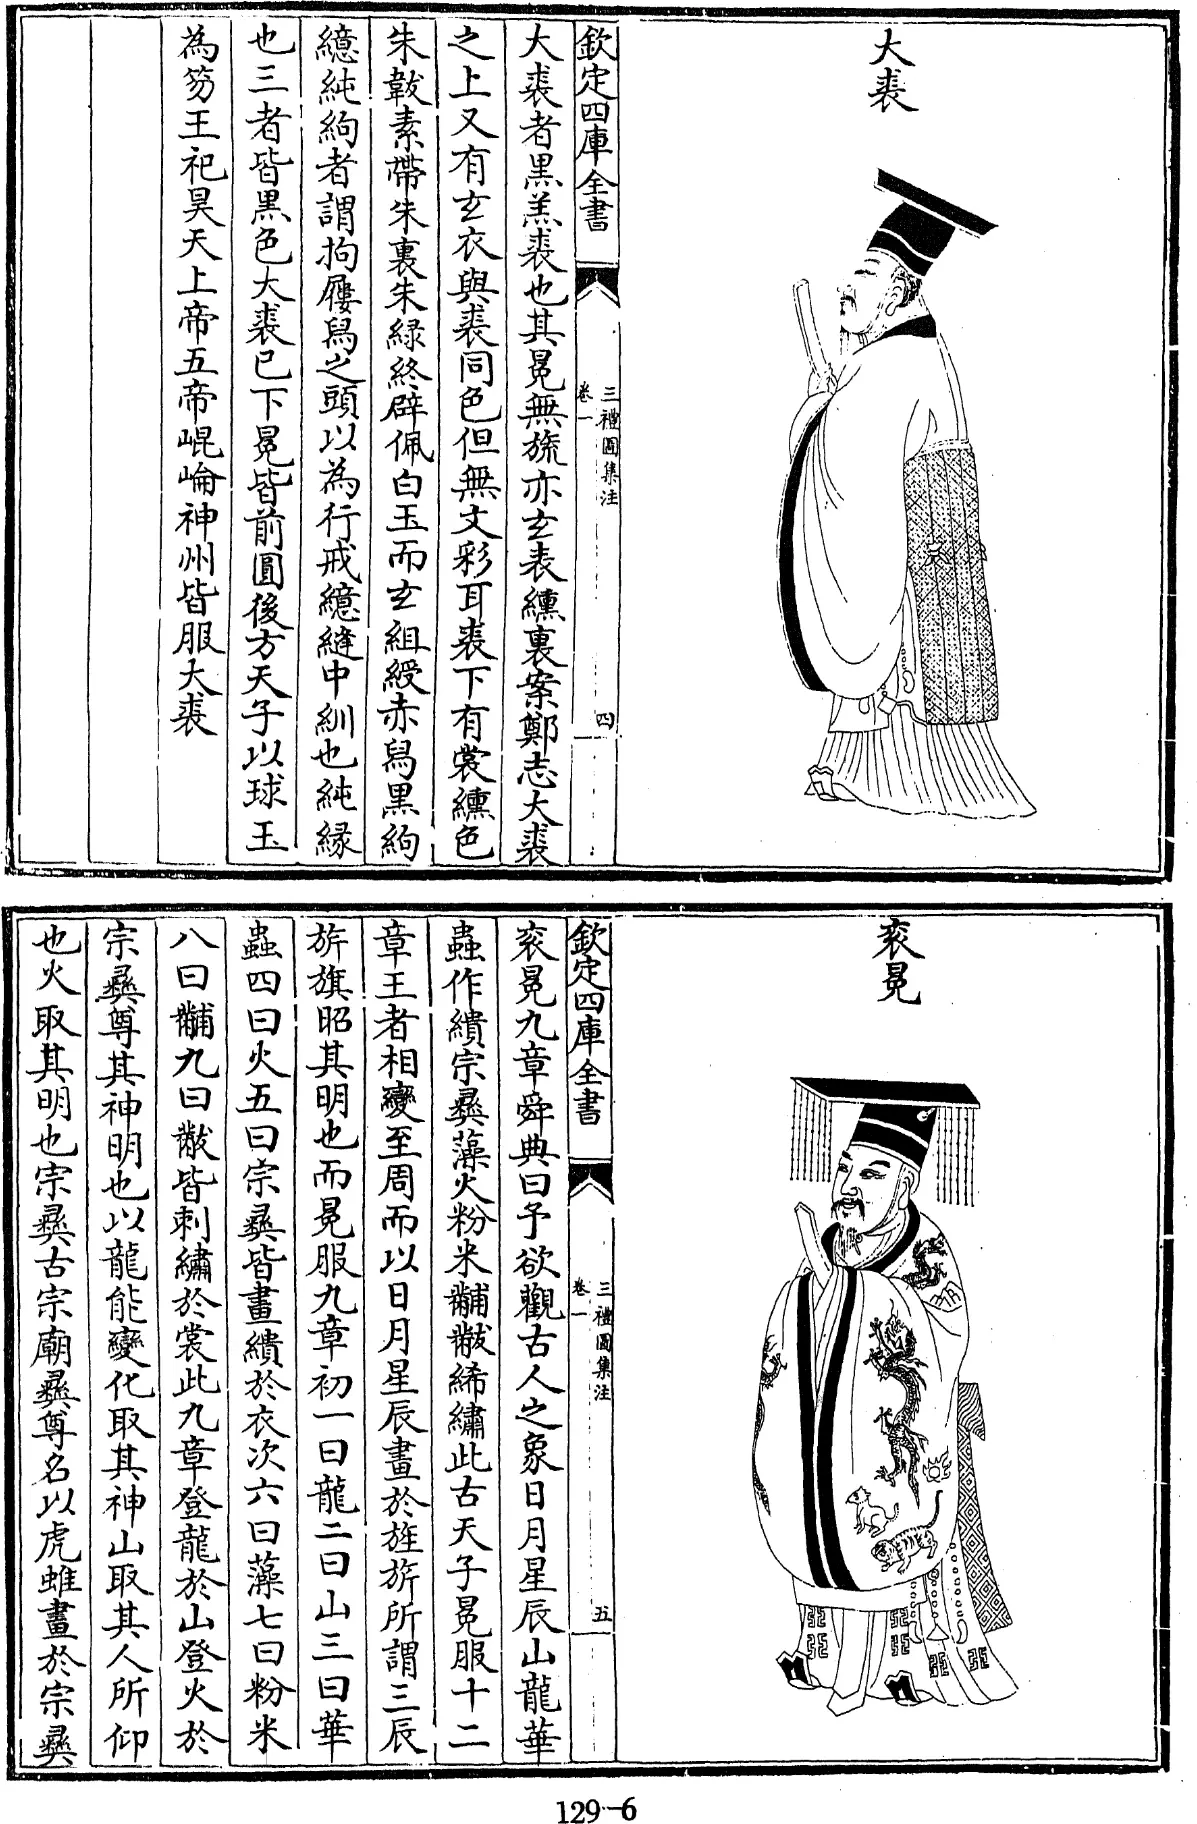 大裘
欽定四庫全書
三禮圖集注
卷一
四
大裘者黒羔裘也其冕無旒亦玄表纁裏案鄭志大裘
之上又有玄衣與裘同色但無文彩耳裘下有裳纁色
朱韍素帶朱裏朱緑終辟佩白玉而玄組綬赤舄黒絇
繶純絇者謂拘屨舄之頭以為行戒繶縫中紃也純緣
也三者皆黒色大裘已下冕皆前圓後方天子以球玉
為笏王祀昊天上帝五帝崐崘神州皆服大裘
衮冕
欽定四庫全書
三禮圖集注
卷一
五
衮冕九章舜典曰予欲觀古人之象日月星辰山龍華
蟲作繢宗彝藻火粉米黼黻絺繡此古天子冕服十二
章王者相變至周而以日月星辰畫於旌旂所謂三辰
旂旗昭其明也而冕服九章初一曰龍二曰山三曰華
蟲四曰火五曰宗彝皆畫繢於衣次六曰藻七曰粉米
八曰黼九曰黻皆刺繡於裳此九章登龍於山登火於
宗彝尊其神明也以龍能變化取其神山取其人所仰
也火取其明也宗彝古宗廟彝尊名以虎蜼畫於宗彝
129-6